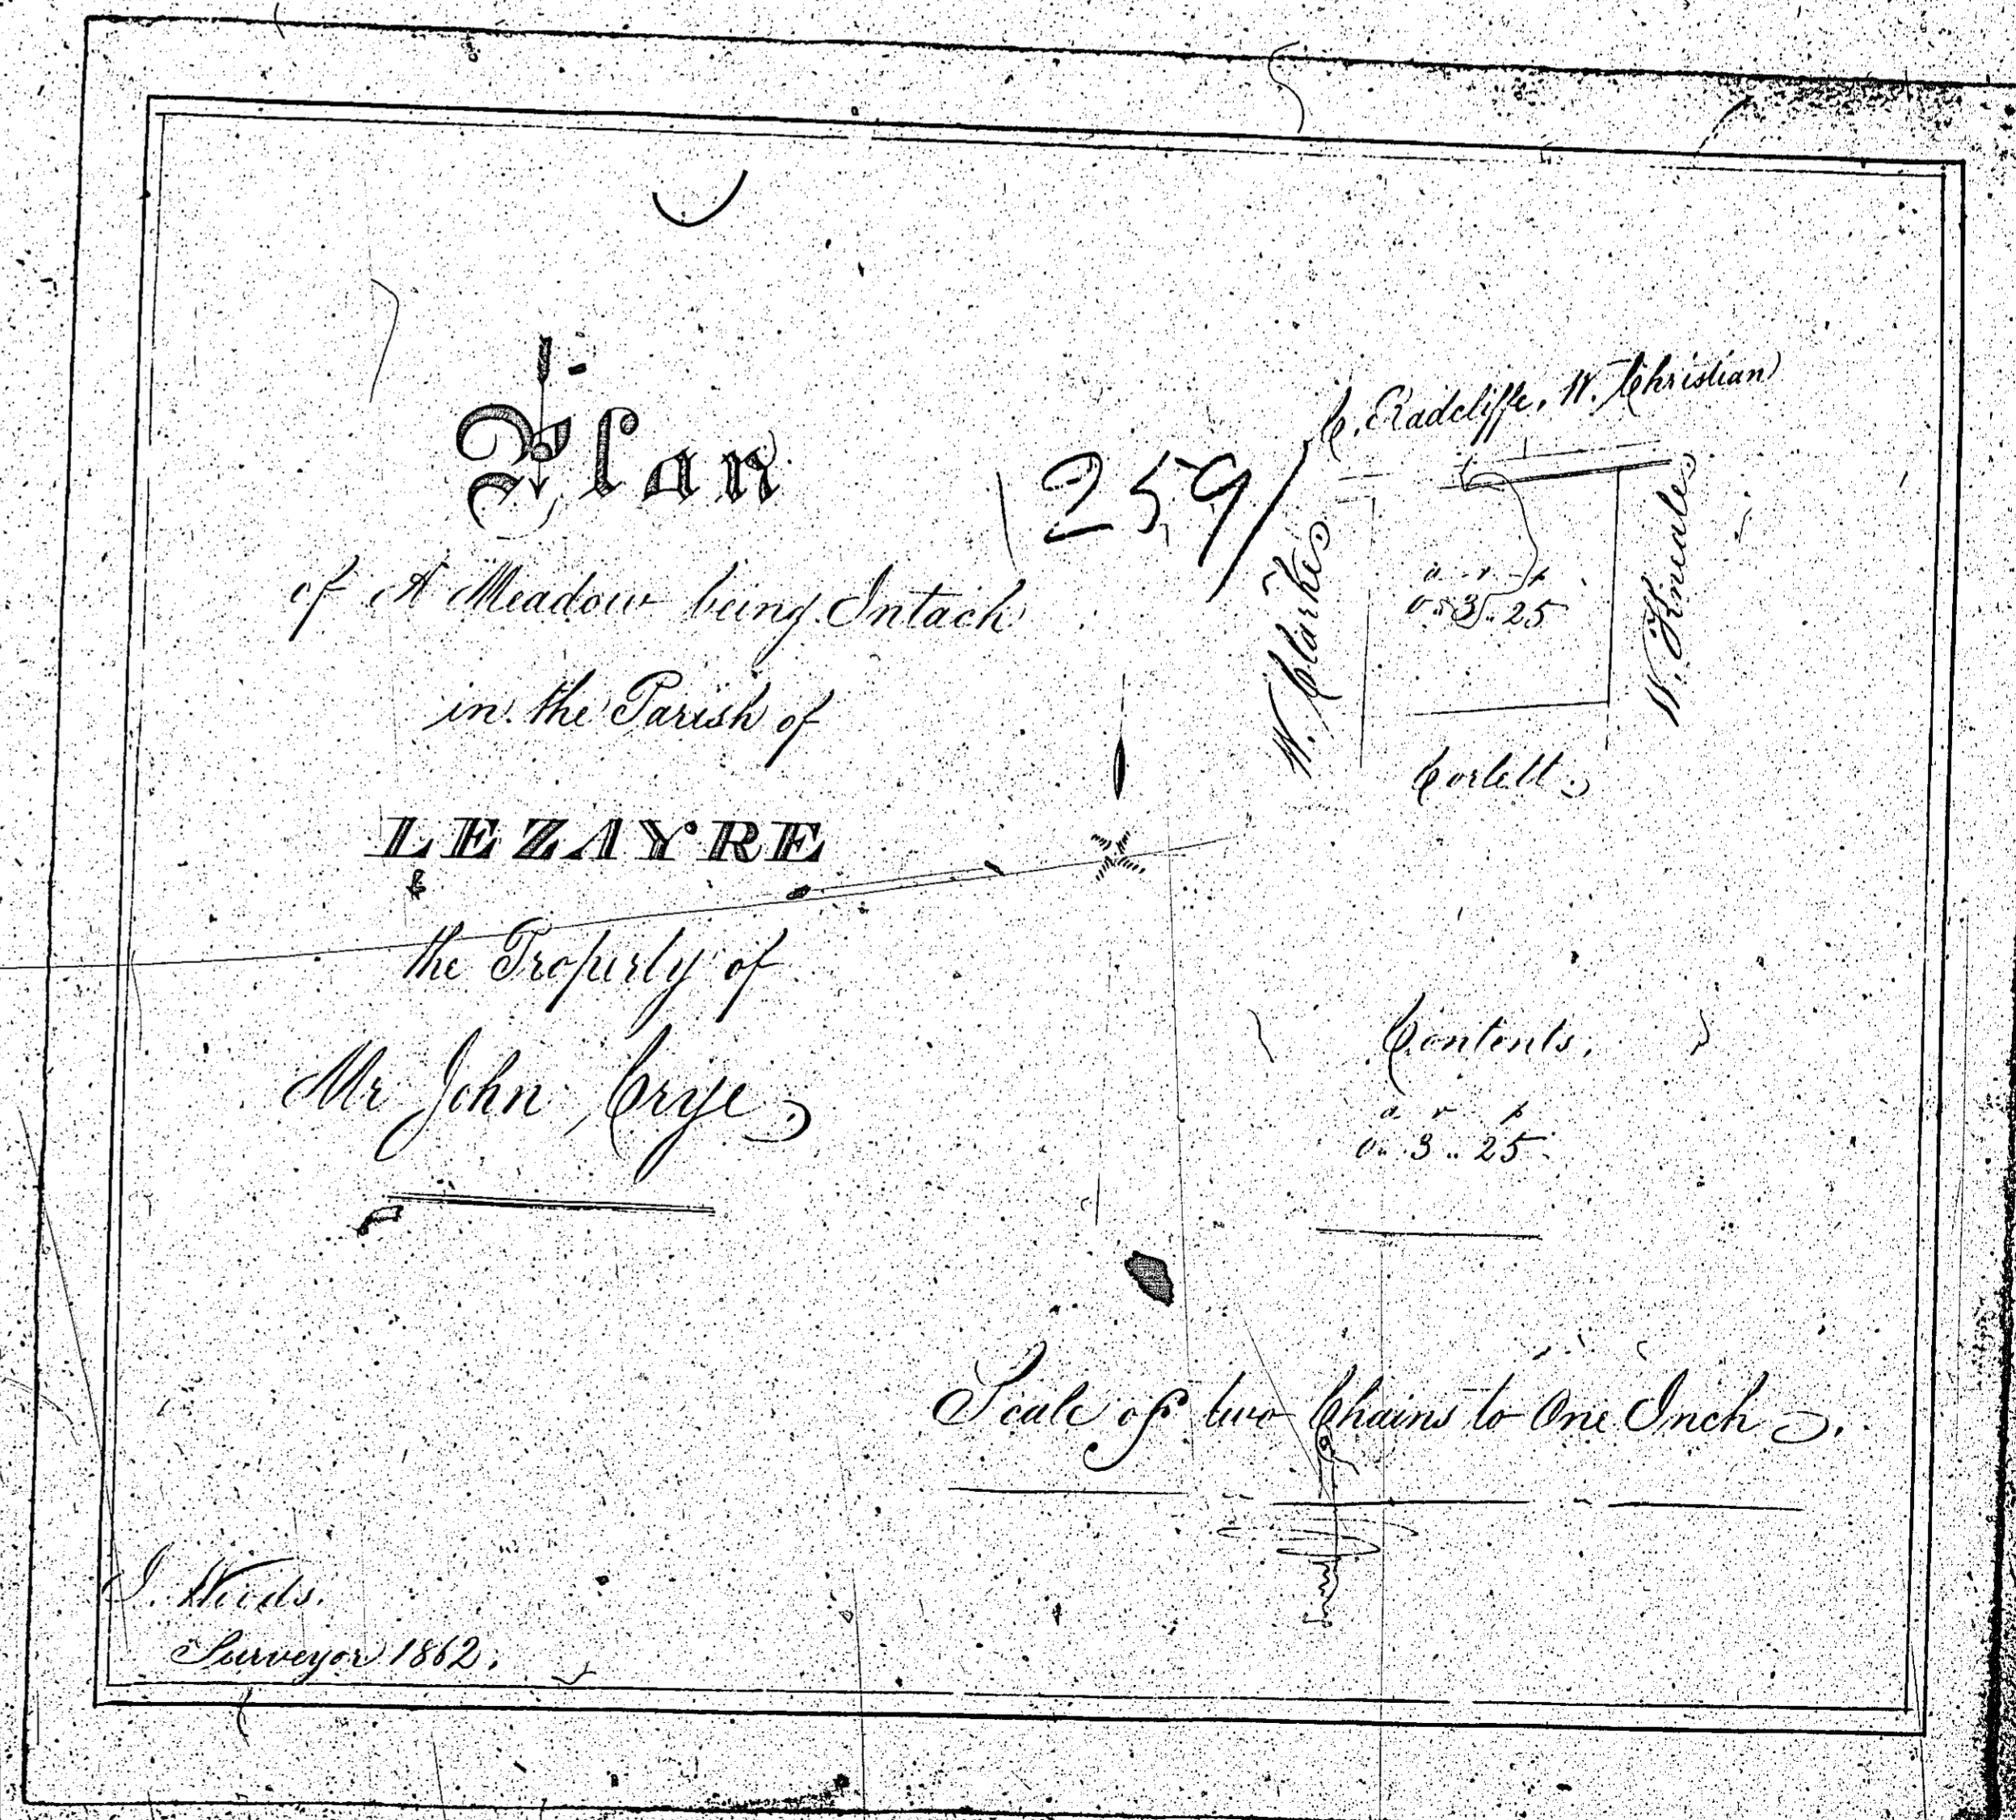 Plan
of A Meadow being Intack
in the Parish of
LEZAYRE
the Property of
Mr John Crye
259/
C. Radcliffe. W. Christian
W. Clarke
a r p
0 .. 3 .. 25
W. Kneale
Corlett
Contents.
a r p
0 .. 3 .. 25
Scale of two Chains to One Inch.
Surveyor 1862.